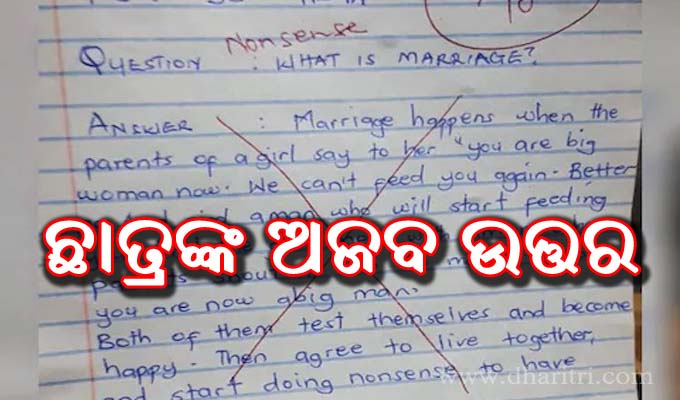 10
Nonsense
QUESTION : WHAT IS MARRIAGE?
ANSWER : Marriage happens when the
parents of a girl say to her "you are big
woman now. We can't feed you again. Better
a man who will start feeding
ଛାତ୍ରଙ୍କ ଅଜବ ଉତ୍ତର
you are now a big man.
Both of them test themselves and become
happy. Then agree to live together,
and start doing nonsense to have
www.dharitri.com